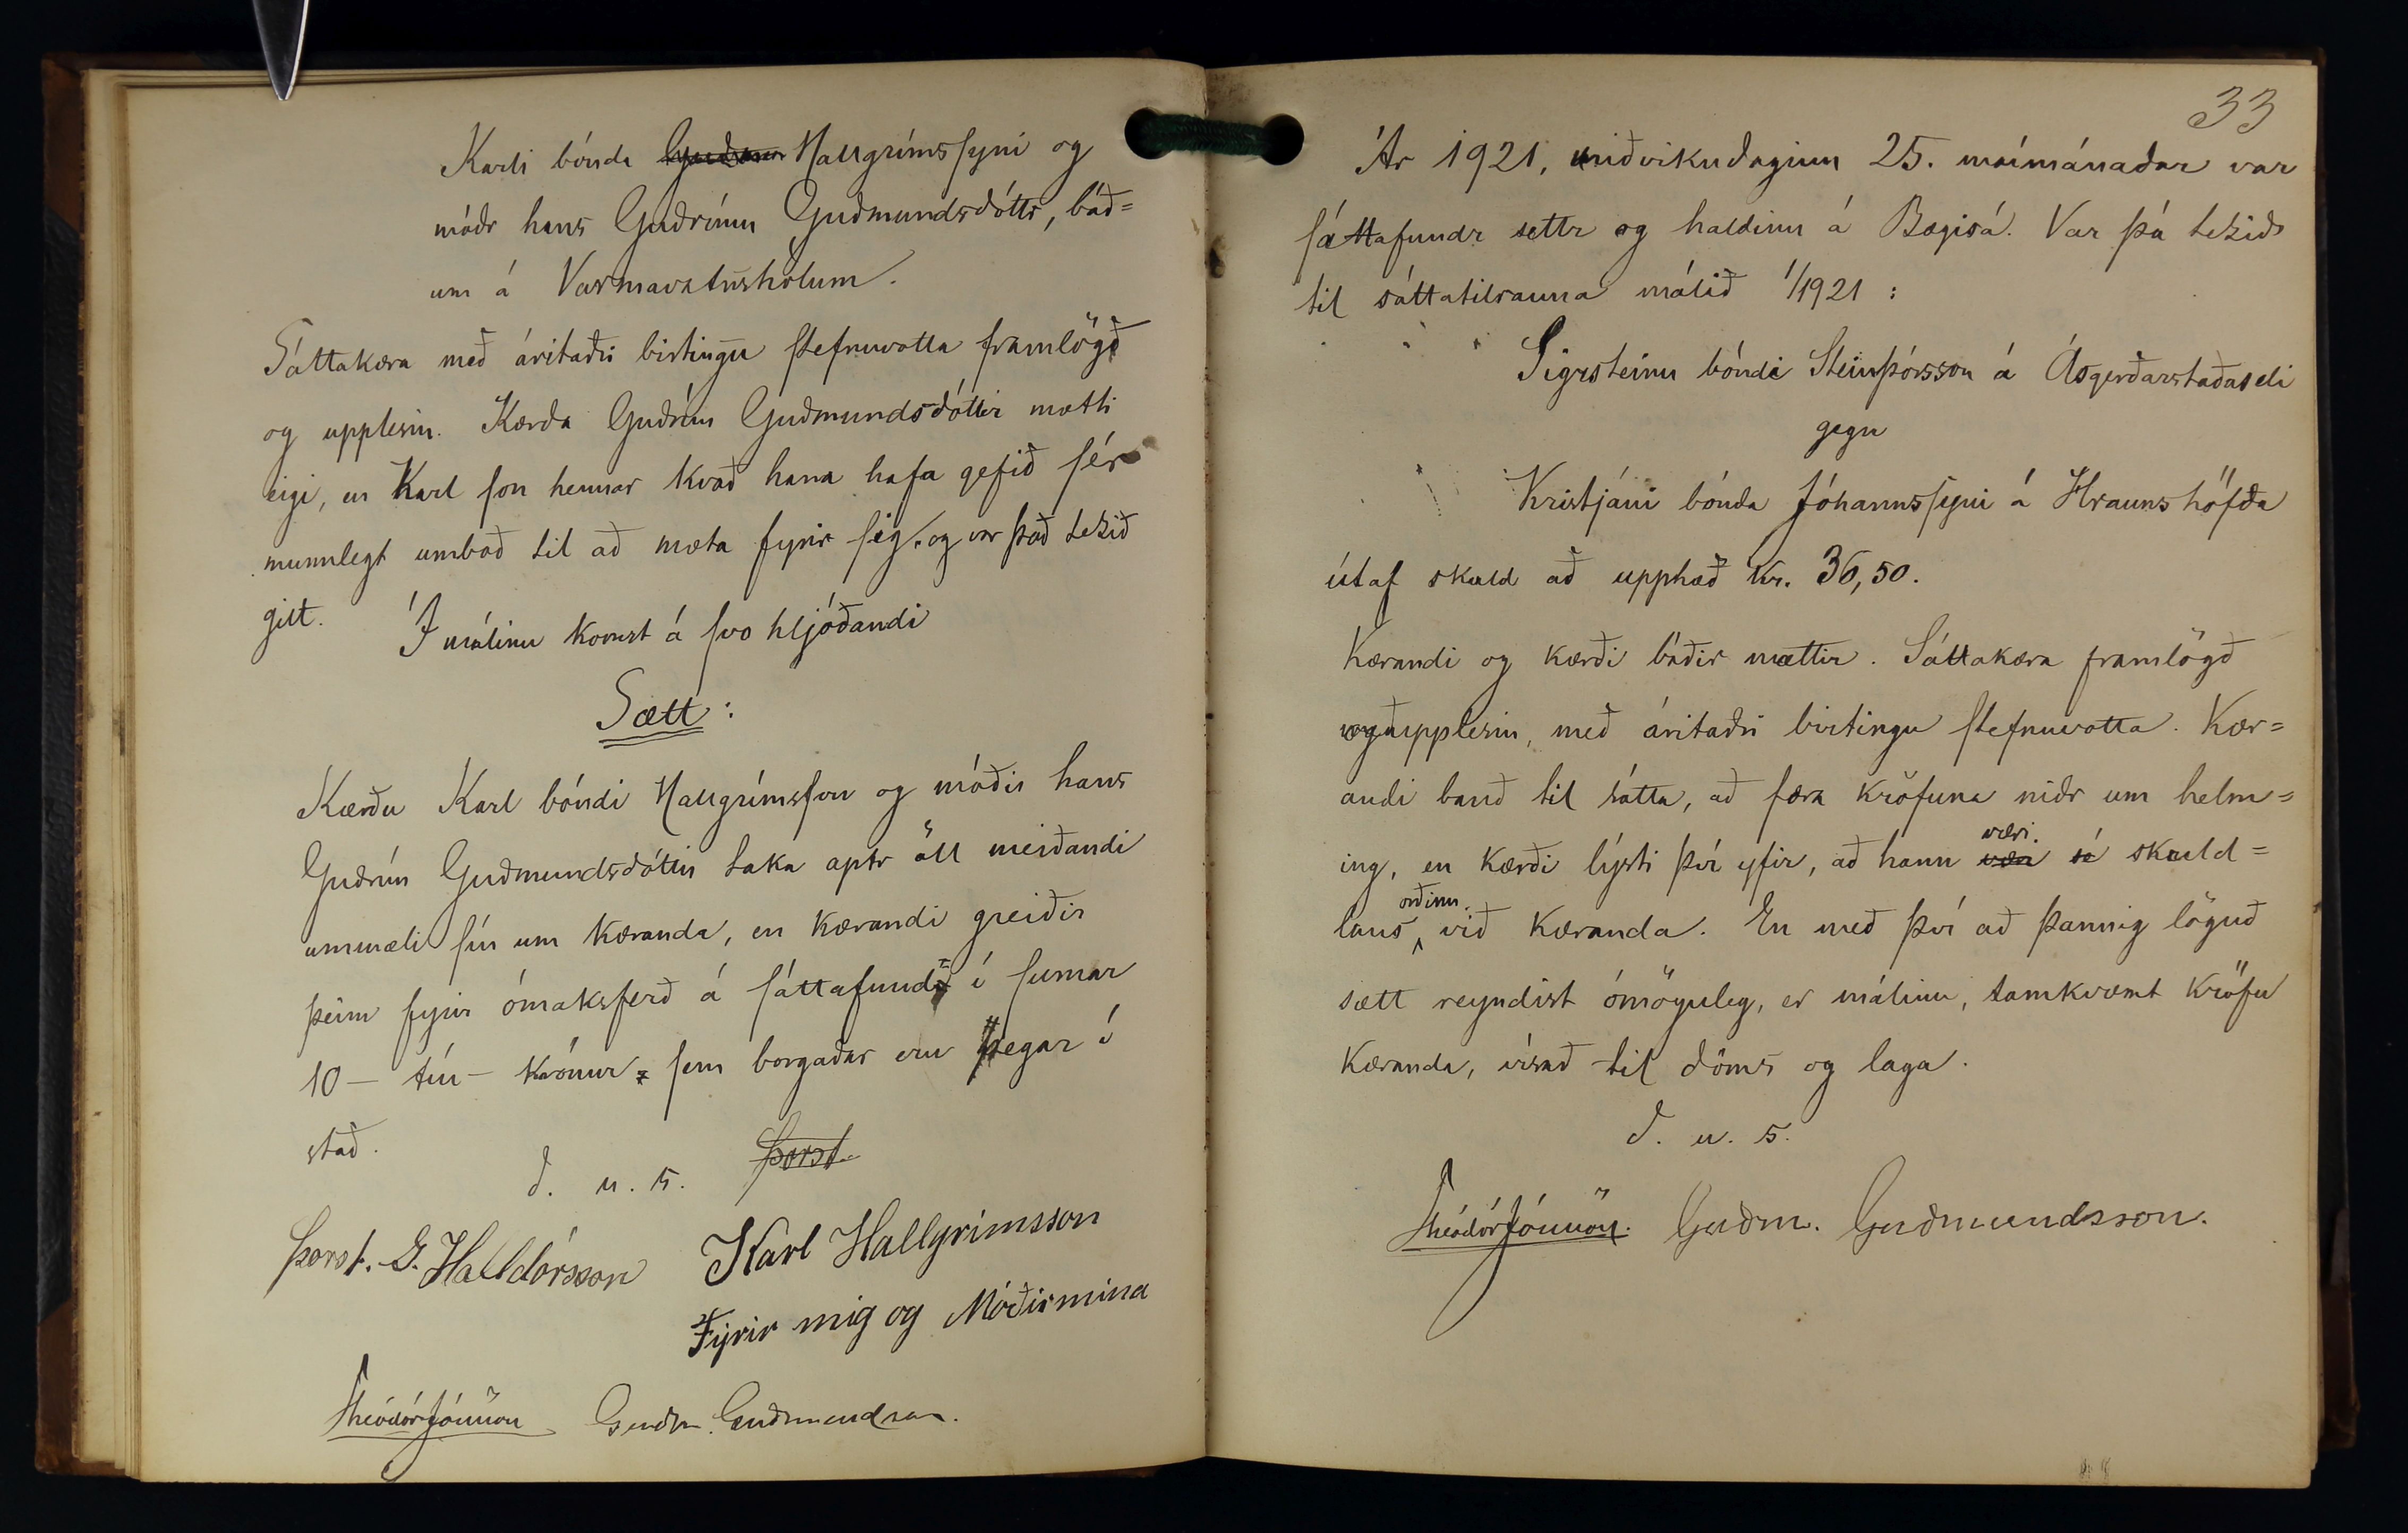 Karli bónda Hallgrímssyni og
móðr hans Guðrúnu Guðmundsdóttr, báð=
um á Varmavatnshólum.
Sáttakæra með áritaðri birtingu stefnuvotta framlögð
og upplesin. Kærða Guðrún Guðmundsdóttir mætti
eigi, en Karl son hennar kvað hana hafa gefið sér
munnlegt umboð til að mæta fyrir sig og var það tekið
gilt. Í málinu komst á svo hljóðandi
Sætt:
Kærðu Karl bóndi Hallgrímsson og móðir hans
Guðrún Guðmundsdóttir taka aptr öll meiðandi
ummæli sín um kæranda, en kærandi greiðir
þeim fyrir ómaksferð á sáttafund í sumar
10 - tíu - krónur sem borgaðar eru þegar í
stað.
D. u. s. Þorst.
Þorst. G. Halldórsson Karl Hallgrímsson
Fyrir mig og Móðir mína
Theódór Jónsson Guðm. Guðmundsson.
33
Ár 1921, miðvikudaginn 25. maímánaðar var
sáttafundr settr og haldinn á Bægisá. Var þá tekið
til sáttatilrauna málið 1/1921:
Sigrsteinn bóndi Steinþórsson á Ásgerðarstaðaseli
gegn
Kristjáni bónda Jóhannssyni á Hraunshöfða
útaf skuld að upphæð kr. 36,50.
Kærandi og kærði báðir mættir. Sáttakæra framlögð
og upplesin, með áritaðri birtingu stefnuvotta. Kær=
andi bauð til sátta, að færa kröfuna niðr um helm=
ing, en kærði lýsti því yfir, að hann væri væri sé skuld=
laus orðinn við kæranda. En með því að þannig löguð
sætt reyndist ómöguleg, er málinu, samkvæmt kröfu
kæranda, vísað til dóms og laga.
D. u. s.
Theódór Jónsson. Guðm. Guðmundsson.